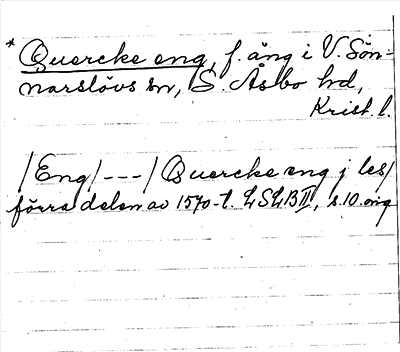 * Quercke eng, f. äng i V. Sön-
narslövs sn, S. Åsbo hd,
Krist. l.
/Eng/---/Quercke eng j les/
förra delen av 1570-t. LSLB II, s. 10. orig